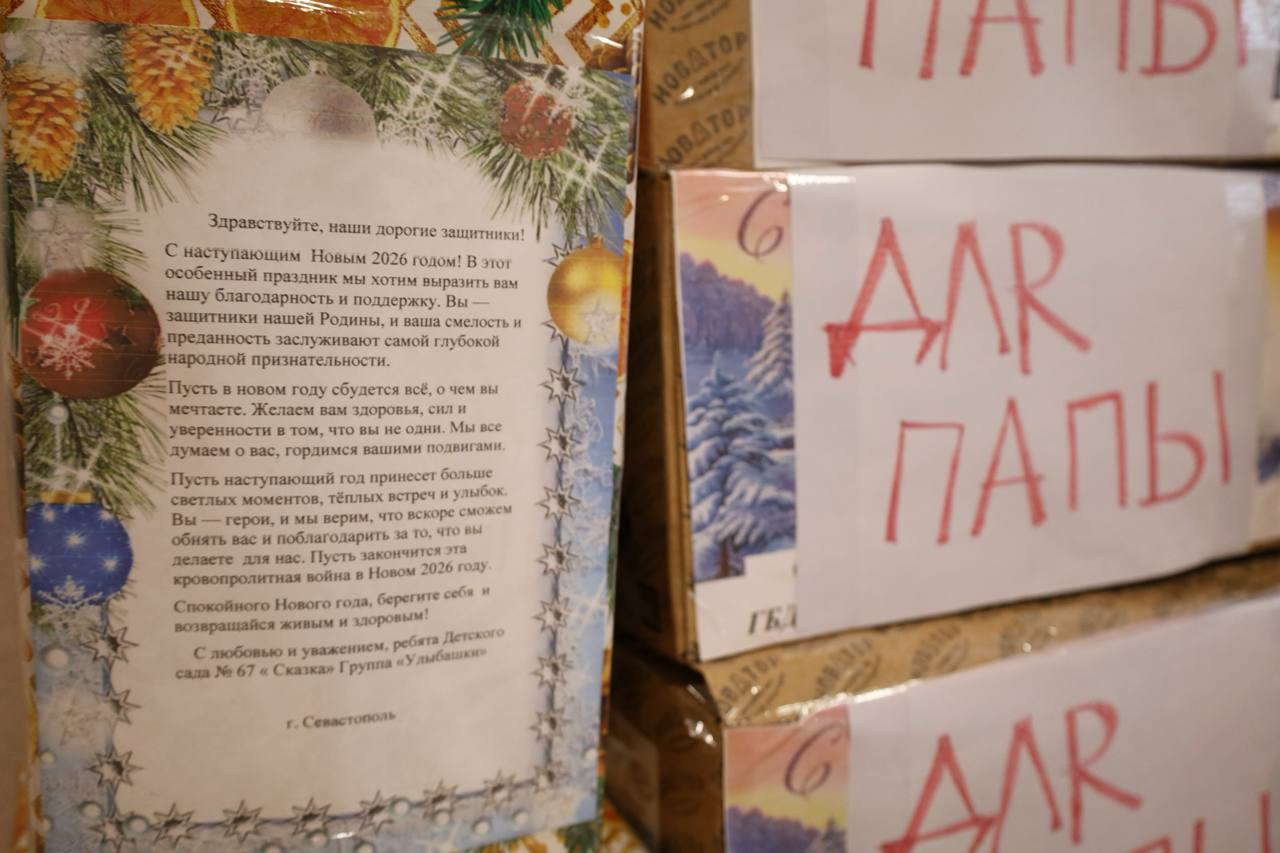 Здравствуйте, наши дорогие защитники!
С наступающим Новым 2026 годом! В этот
особенный праздник мы хотим выразить вам
нашу благодарность и поддержку. Вы —
защитники нашей Родины, и ваша смелость и
преданность заслуживают самой глубокой
народной признательности.
Пусть в новом году сбудется всё, о чем вы
мечтаете. Желаем вам здоровья, сил и
уверенности в том, что вы не одни. Мы все
думаем о вас, гордимся вашими подвигами.
Пусть наступающий год принесет больше
светлых моментов, тёплых встреч и улыбок.
Вы — герои, и мы верим, что вскоре сможем
обнять вас и поблагодарить за то, что вы
делаете для нас. Пусть закончится эта
кровопролитная война в Новом 2026 году.
Спокойного Нового года, берегите себя и
возвращайся живым и здоровым!
С любовью и уважением, ребята Детского
сада № 67 « Сказка» Группа «Улыбашки»
г. Севастополь
ПАПЫ
С
ДЛЯ
ПАПЫ
НОВАТОР
С
ДЛЯ
ПАПЫ